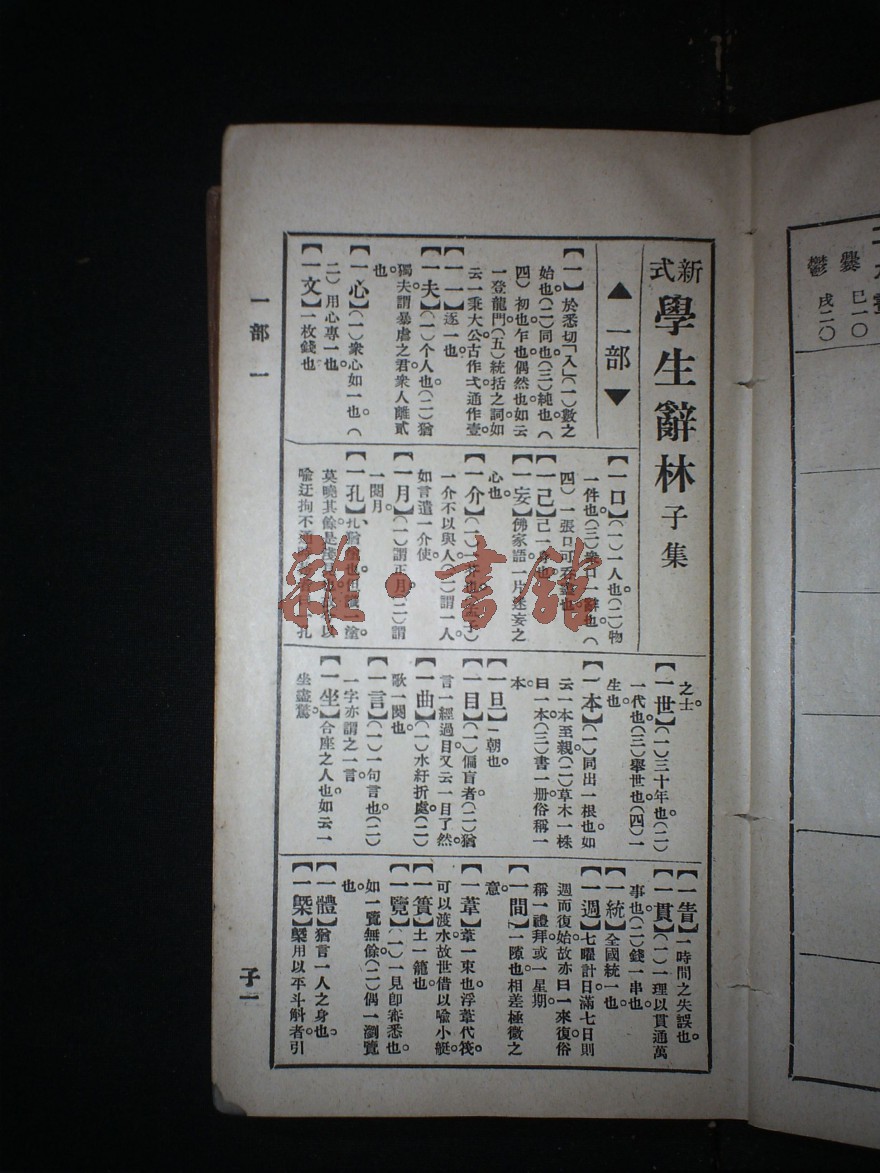 新式學生辭林 子集
▲一部▼
【一】於悉切「入」(一)數之
始也。(二)同也。(三)純也。(
四)初也乍也偶然也如云
一登龍門。(五)統括之詞如
云一秉大公古作弌通作壹
【一一】逐一也。
【一夫】(一)个人也。(二)猶
獨夫謂暴虐之君衆人離貳
也。
【一心】(一)衆心如一也。(
二)用心專一也。
【一文】一枚錢也
【一口】(一)一人也。(二)物
一件也。(三)衆口一辭也。(
四)一張口可
【一己】己一身也
【一妄】佛家語一片迷妄之
心也。
【一介】(一)
一介不以與人。(二)謂一人
如言遣一介使
【一月】(一)謂正月。(二)謂
一閱月。
【一孔】孔
莫曉其餘是
喻迂拘不
之士。
【一世】(一)三十年也。(二)
一代也。(三)舉世也。(四)一
生也。
【一本】(一)同出一根也如
云一本至親。(二)草木一株
曰一本。(三)書一册俗稱一
本。
【一旦】一朝也。
【一目】(一)偏盲者。(二)猶
言一經過目又云一目了然
【一曲】(一)水紆折處。(二)
歌一闋也。
【一言】(一)一句言也。(二)
一字亦謂之一言。
【一坐】合座之人也。如云一
坐盡驚。
【一眚】一時間之失誤也。
【一貫】(一)一理以貫通萬
事也。(二)錢一串也。
【一統】全國統一也
【一週】七曜計日滿七日則
週而復始故亦曰一來復俗
稱一禮拜或一星期。
【一間】一隙也。相差極微之
意。
【一葦】葦一束也。浮葦代筏
可以渡水故世借以喻小艇
【一簣】土一籠也。
【一覽】(一)一見卽審悉也。
如一覽無餘。(二)偶一瀏覽
也。
【一體】猶言一人之身也。
【一槩】槩用以平斗斛者。引
一部 一
子一
雜·書館
爨 巳一〇
鬱 戌二〇